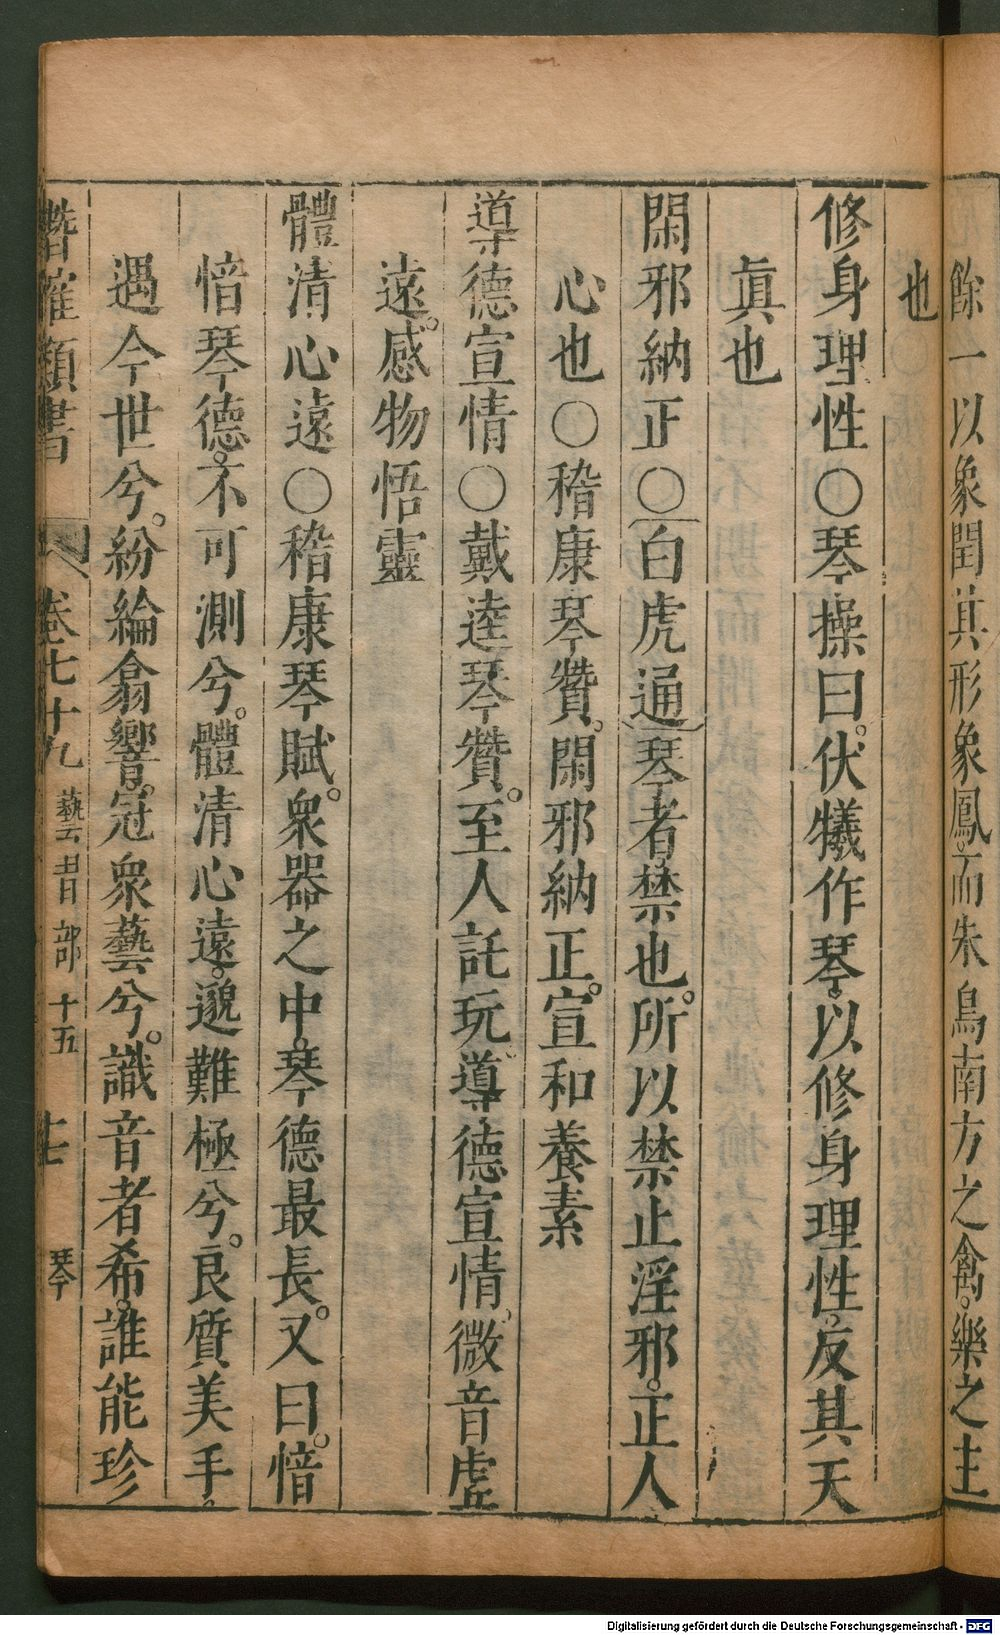 餘一以象閏其形象鳳而朱鳥南方之禽樂之主
也
修身理性○琴操曰伏犧作琴以修身理性反其天
眞也
閑邪納正○白虎通琴者禁也所以禁止淫邪正人
心也○稽康琴贊閑邪納正宣和養素
導德宣情○戴逵琴贊至人託玩導德宣情微音虛
遠感物悟靈
體清心遠○稽康琴賦衆器之中琴德最長又曰愔
愔琴德不可測兮體清心遠邈難極兮良質美手
遇今世兮紛綸翕響冠衆藝兮識音者希誰能珍
類書 卷七十九 藝習部十五 七 琴
Digitalisierung gefördert durch die Deutsche Forschungsgemeinschaft - DFG